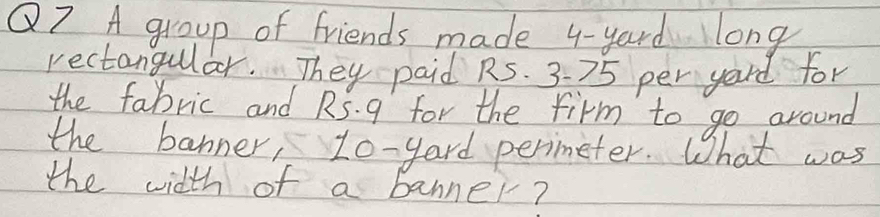 Q7 A group of friends made 4-yard long
rectangular. They paid RS. 3.75 per yard for
the fabric and Rs.9 for the firm to go around
the banner, 10-yard perimeter. What was
the width of a banner?